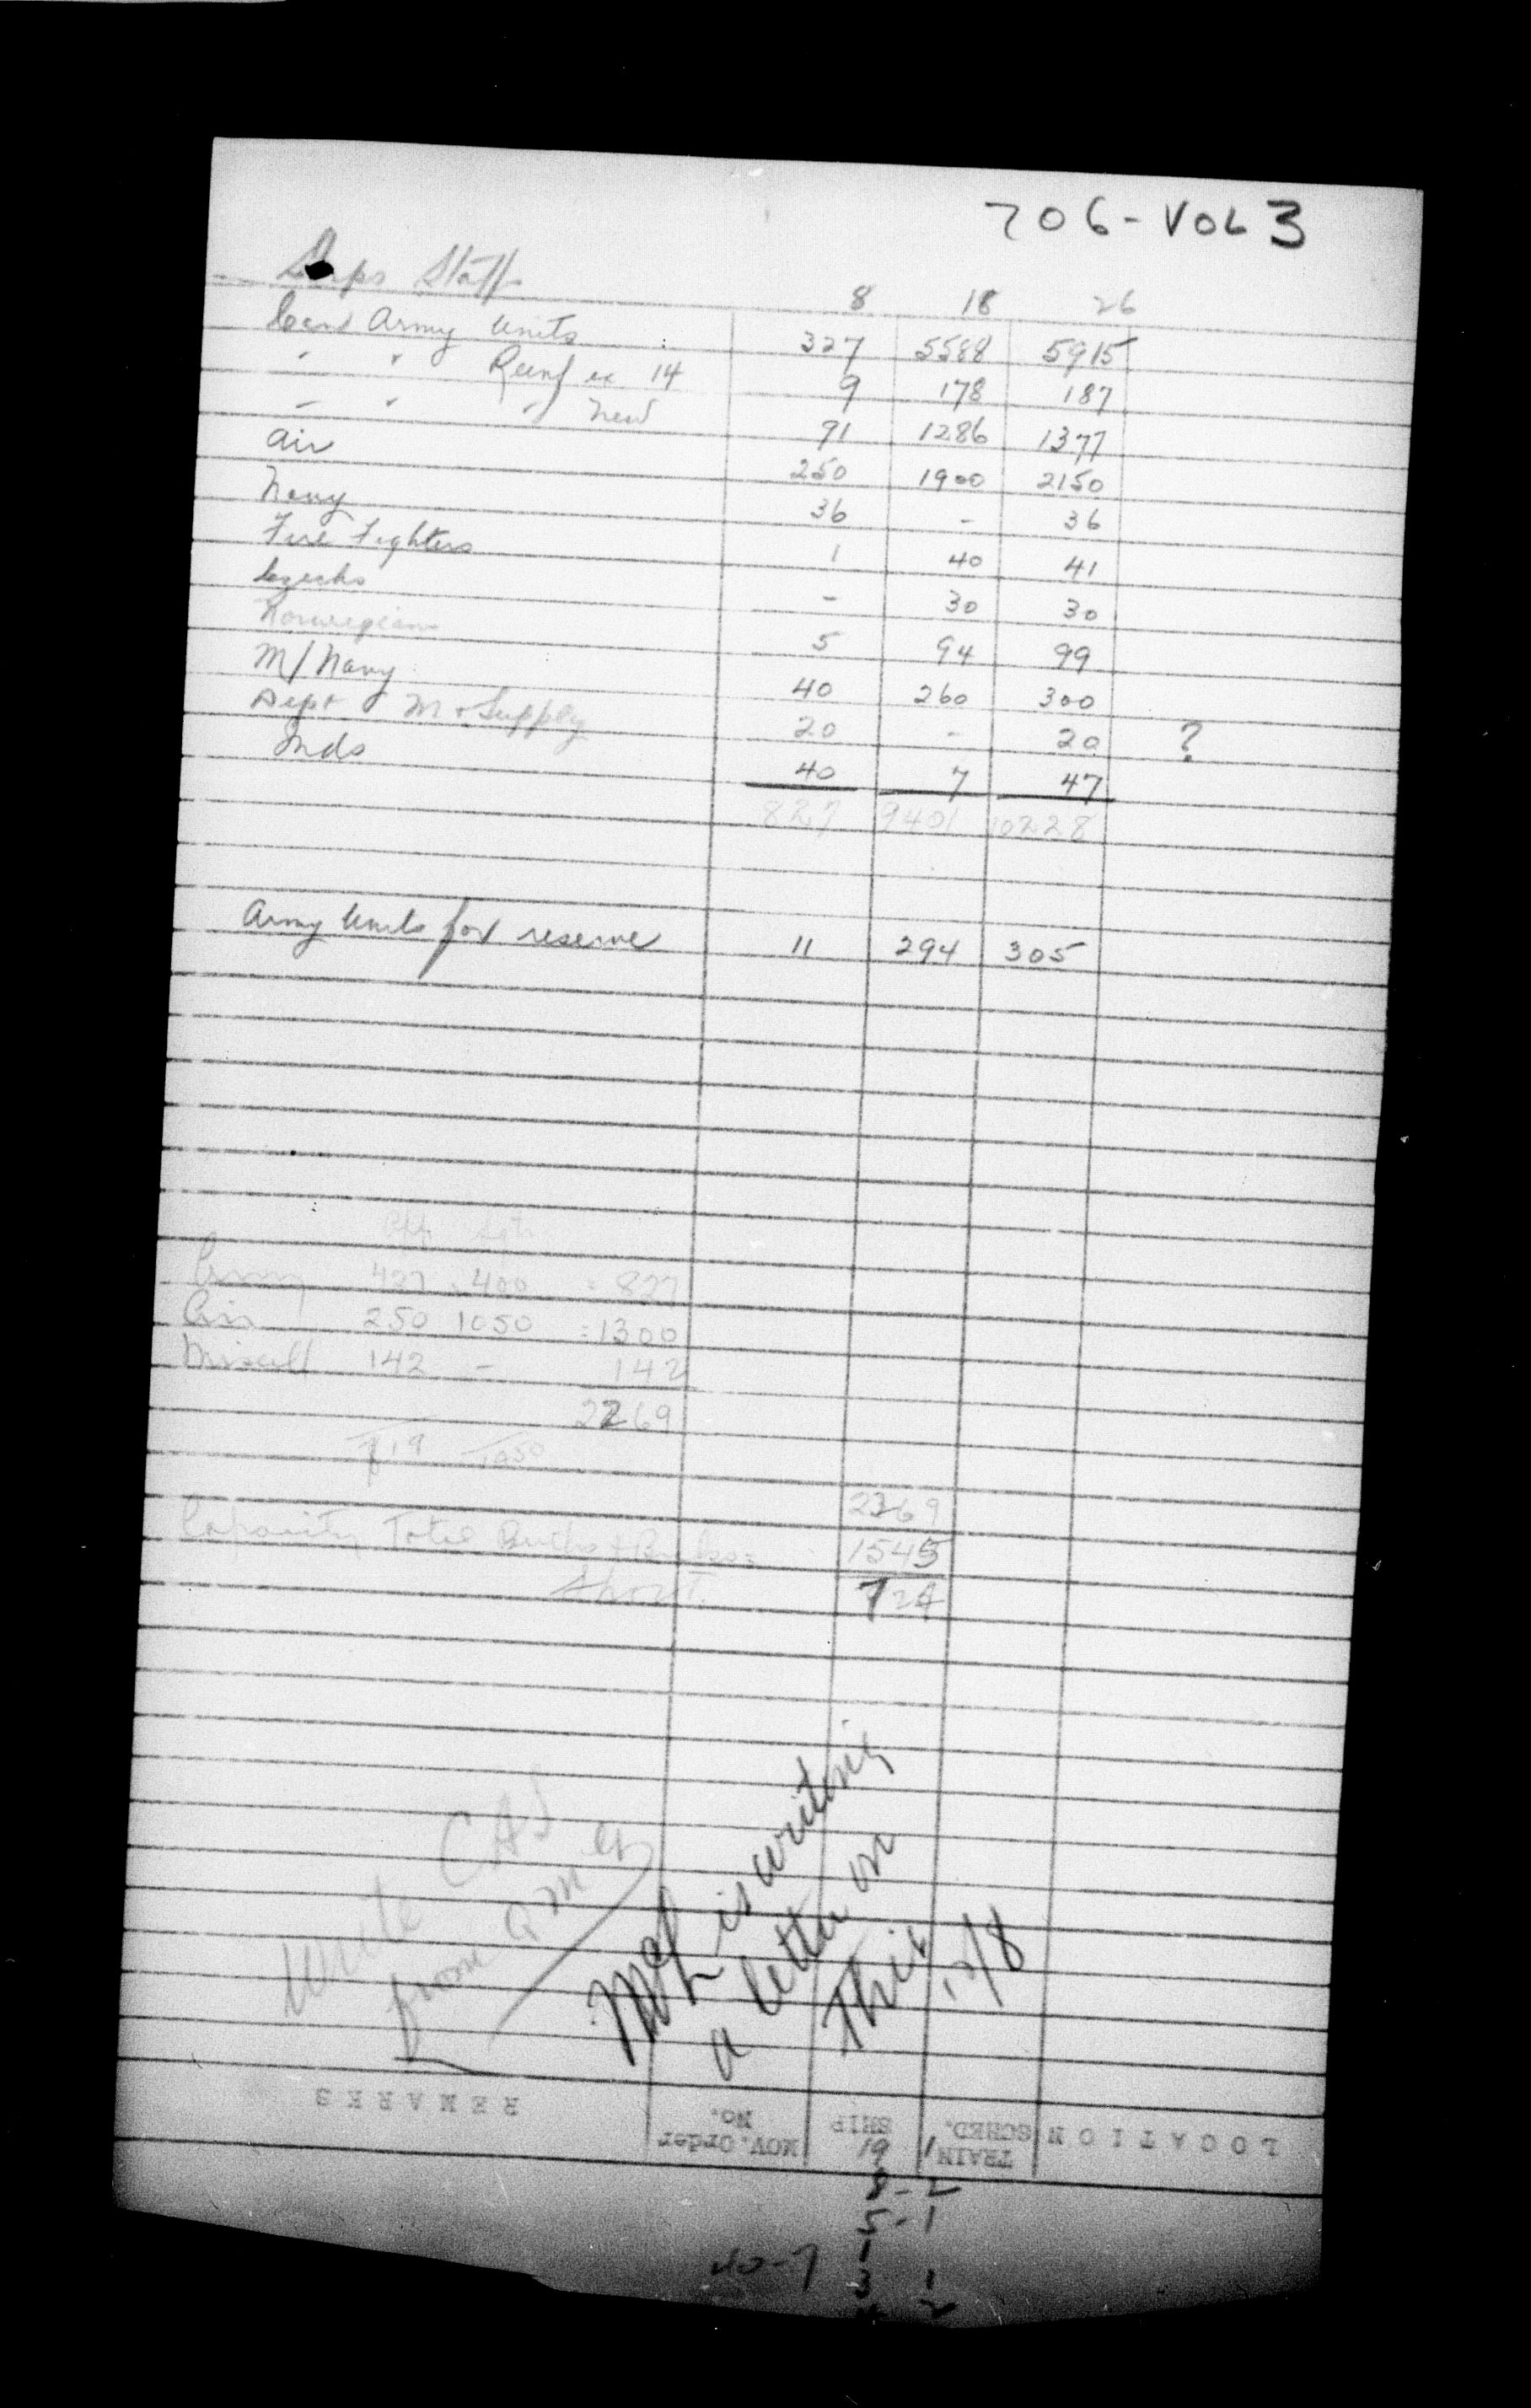 706-VOL 3
Ships Staff 8 18 26
Can Army Units 327 5588 5915
" " Reinf ex 14 9 178 187
" " " New 91 1286 1377
Air 250 1900 2150
Navy 36 - 36
Fire Fighters 1 40 41
Czechs - 30 30
Norwegians 5 94 99
M/Navy 40 260 300
Dept M & Supply 20 - 20 ?
Inds 40 7 47
827 9401 10228
Army Units for reserve 11 294 305
Off Sgts
Army 427 400 = 827
Air 250 1050 = 1300
Miscell 142 - 142
2269
819 1450
2269
Capacity Total Berths & Bunks = 1545
Short. 724
Write CAS
from QMG
McL is writing
a letter on
this
REMARKS
MOV. Order No.
SHIP
TRAIN SCHED.
LOCATION
19 1
8-2
5-1
1
40-7 3 1
2